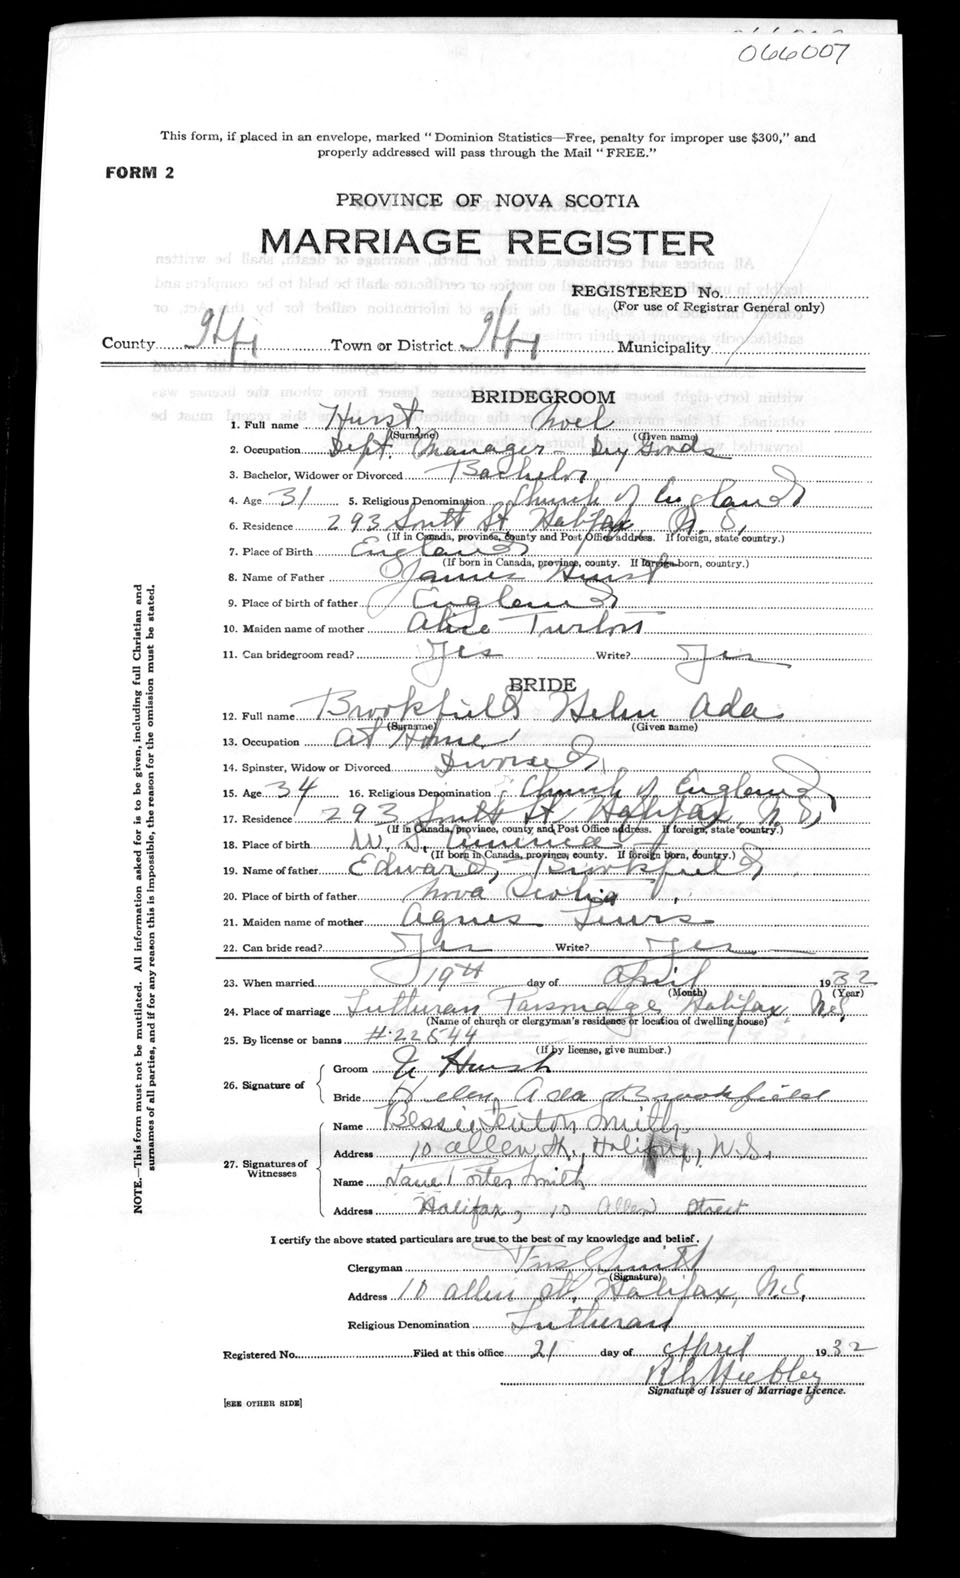 066007
This form, if placed in an envelope, marked "Dominion Statistics—Free, penalty for improper use $300," and
properly addressed will pass through the Mail "FREE."
FORM 2
PROVINCE OF NOVA SCOTIA
MARRIAGE REGISTER
REGISTERED No.
(For use of Registrar General only)
County Hfx Town or District Hfx Municipality
BRIDEGROOM
1. Full name Hurst Noel
(Surname) (Given name)
2. Occupation Dept. Manager - Dry Goods
3. Bachelor, Widower or Divorced Bachelor
4. Age 31 5. Religious Denomination Church of England
6. Residence 293 South St. Halifax, N. S.
(If in Canada, province, county and Post Office address. If foreign, state country.)
7. Place of Birth England
(If born in Canada, province, county. If foreign born, country.)
8. Name of Father James Hurst
9. Place of birth of father England
10. Maiden name of mother Alice Turton
11. Can bridegroom read? Yes Write? Yes
BRIDE
12. Full name Brookfield Helen Ada
(Surname) (Given name)
13. Occupation At Home
14. Spinster, Widow or Divorced Divorced
15. Age 34 16. Religious Denomination Church of England
17. Residence 293 South St. Halifax, N. S.
(If in Canada, province, county and Post Office address. If foreign, state country.)
18. Place of birth U. S. America
(If born in Canada, province, county. If foreign born, country.)
19. Name of father Edward Brookfield
20. Place of birth of father Nova Scotia
21. Maiden name of mother Agnes
22. Can bride read? Yes Write? Yes
23. When married 19th day of April 1932
(Month) (Year)
24. Place of marriage Lutheran Parsonage, Halifax, N.S.
(Name of church or clergyman's residence or location of dwelling house)
25. By license or banns #22544
(If by license, give number.)
26. Signature of
Groom N Hurst
Bride Helen Ada Brookfield
27. Signatures of Witnesses
Name Bessie Smith
Address 10 Allen St., Halifax, N.S.
Name Porter Smith
Address Halifax, 10 Allen Street
I certify the above stated particulars are true to the best of my knowledge and belief.
Clergyman Smith
(Signature)
Address 10 Allen St. Halifax, N.S.
Religious Denomination Lutheran
Registered No. Filed at this office 21 day of April 1932
Signature of Issuer of Marriage Licence.
[SEE OTHER SIDE]
NOTE.—This form must not be mutilated. All information asked for is to be given, including full Christian and
surnames of all parties, and if for any reason this is impossible, the reason for the omission must be stated.